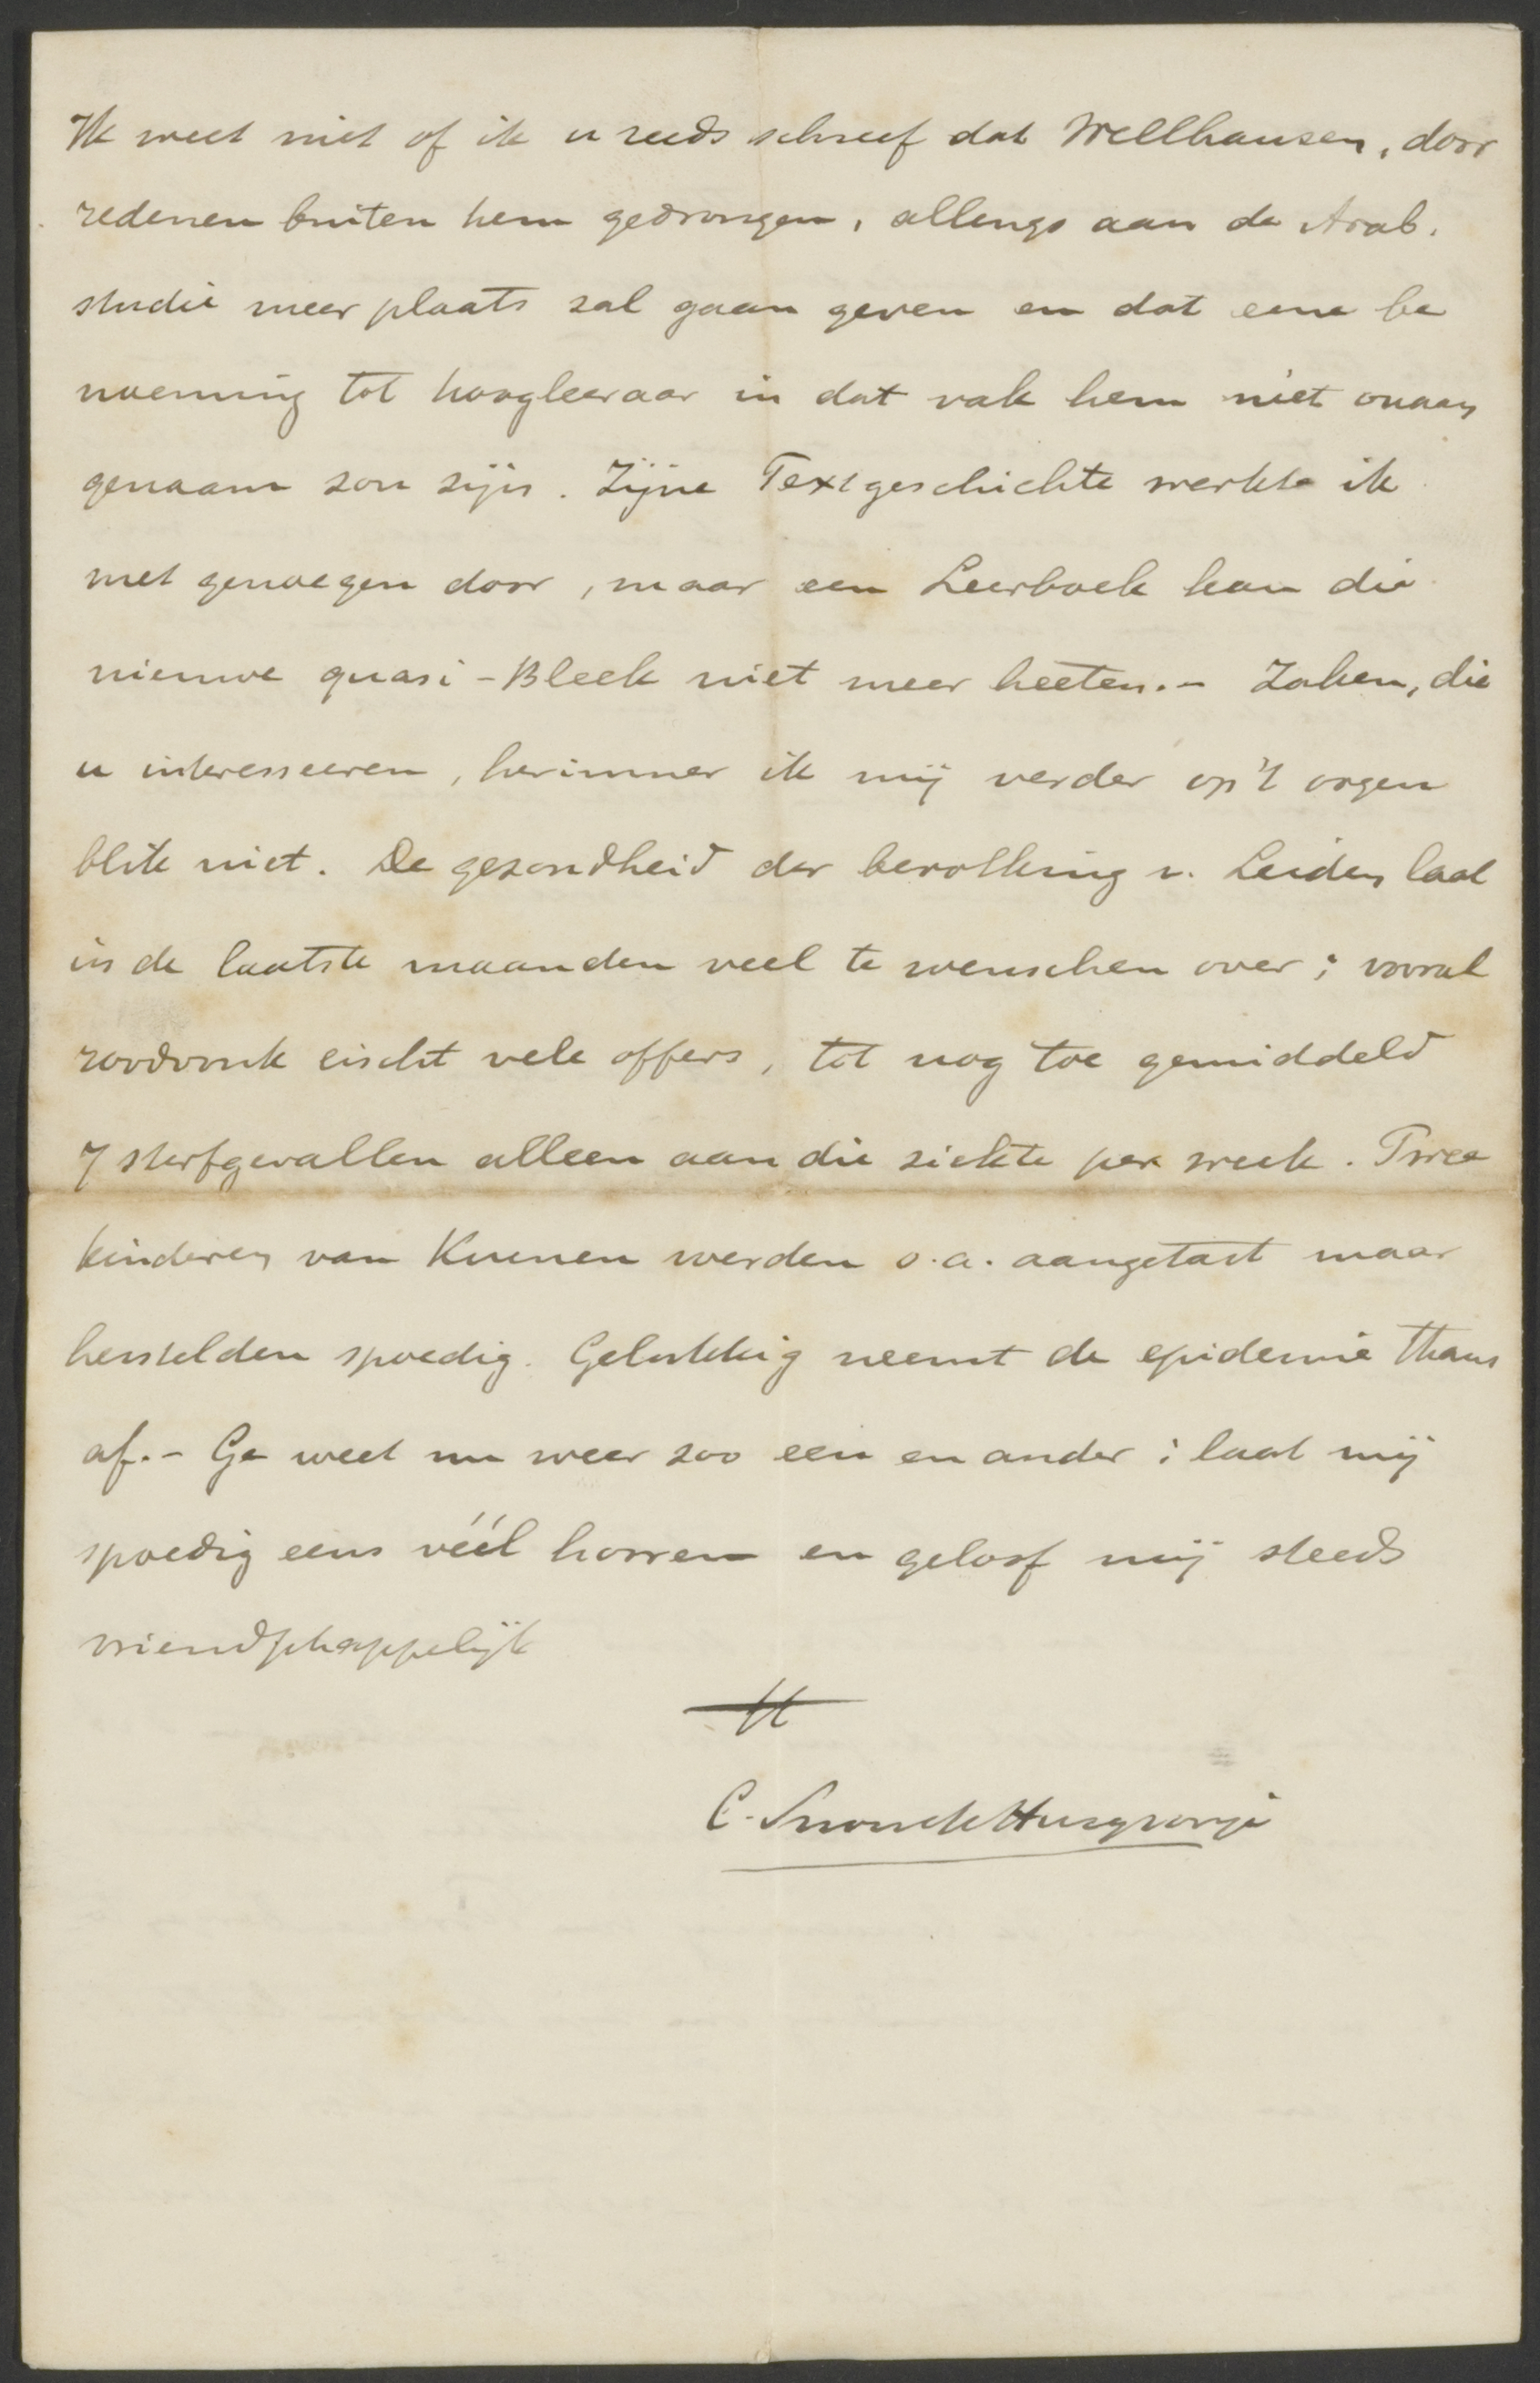 Ik weet niet of ik u reeds schreef dat Wellhausen, door
redenen buiten hem gedrongen, allengs aan de Arab.
studie meer plaats zal gaan geven en dat eene be
noeming tot hoogleeraar in dat vak hem niet onaan
genaam zou zijn. Zijne Textgeschichte werkte ik
met genoegen door, maar een Leerboek kan die
nieuwe quasi-Bleek niet meer heeten.- Zaken, die
u interesseeren, herinner ik mij verder op 't oogen
blik niet. De gezondheid der bevolking v. Leiden laat
in de laatste maanden veel te wenschen over; vooral
roodvonk eischt vele offers, tot nog toe gemiddeld
7 sterfgevallen alleen aan die ziekte per week. Twee
kinderen van Kuenen werden o.a. aangetast maar
herstelden spoedig. Gelukkig neemt de epidemie thans
af.- Ge weet nu weer zoo een en ander; laat mij
spoedig eens véél hooren en geloof mij steeds
vriendschappelijk
tt
C. Snouck Hurgronje